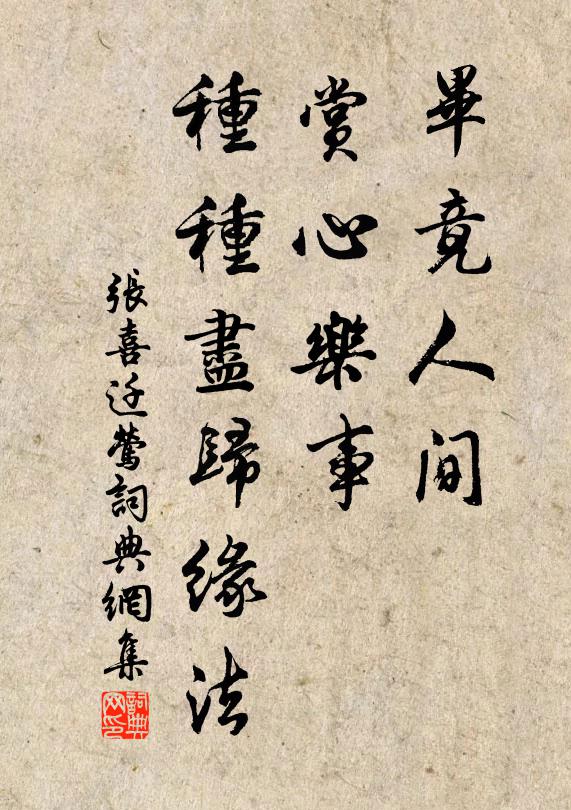 畢竟人间
賞心樂事
種種盡歸緣法
張喜迁鶯詞典網集
詞典网印